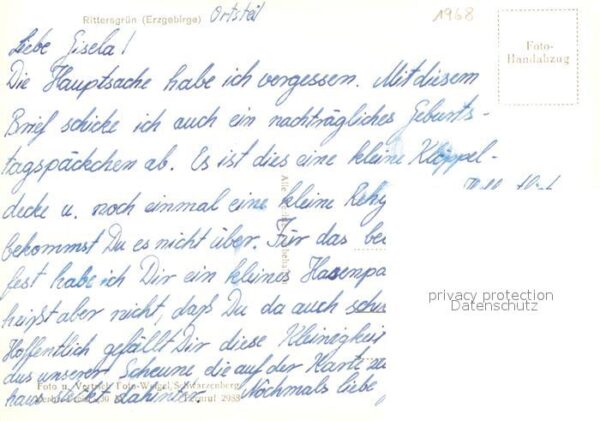 Rittersgrün (Erzgebirge) Ortsteil
1968
Foto-
Handabzug
Liebe Gisela!
Die Hauptsache habe ich vergessen. Mit diesem
Brief schicke ich auch ein nachträgliches Geburts-
tagspäckchen ab. Es ist dies eine kleine Klöppel-
decke u. noch einmal eine kleine
bekommst Du es nicht über. Für das
fest habe ich Dir ein kleines Hasenpa
heißt aber nicht, daß Du da auch
Hoffentlich gefällt Dir diese Kleinigkei
aus unserer Scheune die auf der Karte zu
haus steckt dahinter. Nochmals liebe
Foto u. Vertrieb Foto-Weigel, Schwarzenberg
2933
privacy protection
Datenschutz